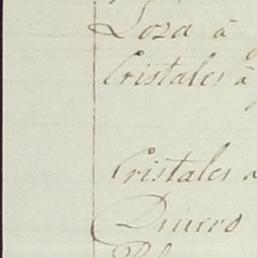 Loza à
Cristales à
Cristales a
Dinero